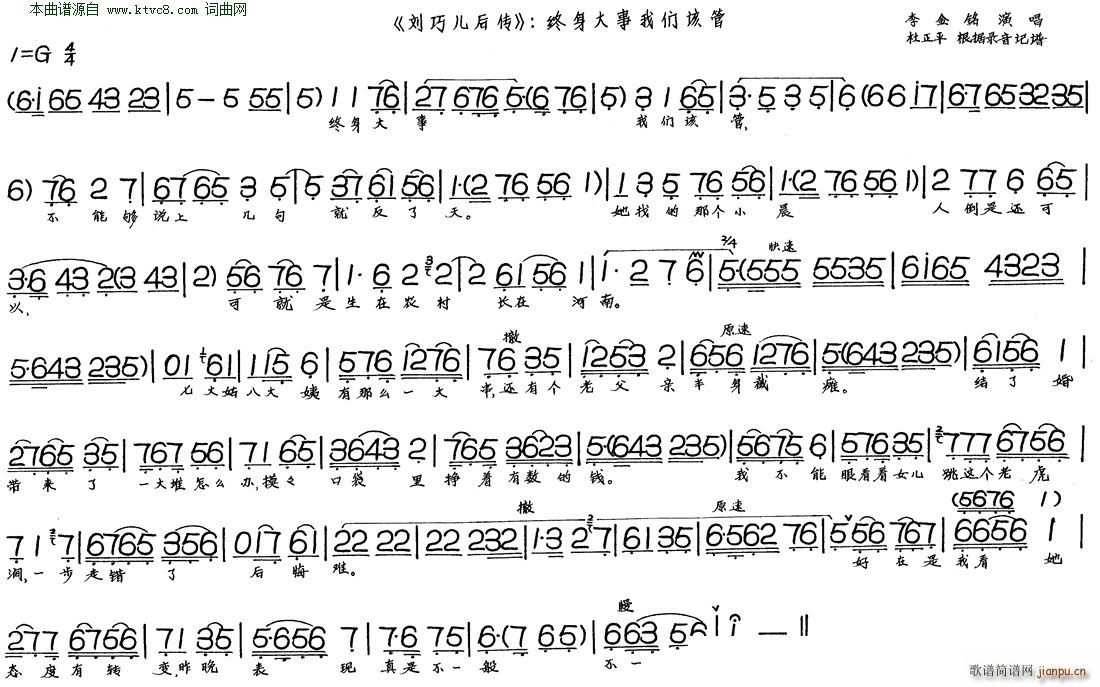 本曲谱源自 www.ktvc8.com 词曲网
《刘巧儿后传》：终身大事我们该管
李金铭 演唱
杜正平 根据录音记谱
1=G 4/4
(6·i 65 43 23 | 5 — 5 55 | 5) 1 1 76 | 27 676 5·(6 76 | 5) 3 1 65 | 3·5 3 5 | 6 (66 i7 | 67 65 32 35 |
终身大事 我们该管,
6) 76 2 7 | 67 65 3 5 | 5 37 61 56 | 1·(2 76 56 1) | 1 3 5 76 56 | 1·(2 76 56 1) | 2 77 6 65 |
不能够说上 几句 就反了天。 她找的那个小晨 人倒是还可
3·6 43 2(3 43 | 2) 56 76 7 | 1·6 2 2 | 2 61 56 1 | 1·2 7 6 | 2/4 5·(555 5535 | 6i65 4323 |
快速
以, 可就是生在农村 长在河南。
5·643 235) | 01 61 | 115 6 | 576 1276 | 76 35 | 1253 2 | 656 1276 | 5·(643 235) | 6156 1 |
撤 原速
七大姑八大姨 有那么一大串,还有个老父亲半身截瘫。 结了婚
2765 35 | 767 56 | 71 65 | 3643 2 | 765 3623 | 5·(643 235) | 5675 6 | 57635 | 777 6756 |
带来了一大堆怎么办,摸々口袋里挣着有数的钱。 我不能眼看着女儿跳这个老虎
(5676 1)
71 7 | 6765 356 | 017 61 | 22 22 | 22 232 | 1·3 27 | 6135 | 6·562 76 | 556 767 | 6656 1 |
撤 原速
涧,一步走错了 后悔难。 好在是我看她
277 6756 | 71 35 | 5·656 7 | 7·6 75 | 6·(7 65) | 663 56 i i — ‖
慢
态度有转变,昨晚表现真是不一般 不一
歌谱简谱网 jianpu.cn